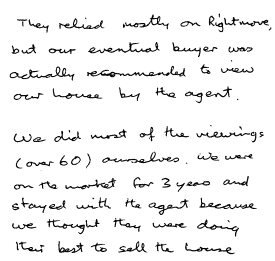 They relied mostly on Rightmove,
but our eventual buyer was
actually recommended to view
our house by the agent.
We did most of the viewings
(over 60) ourselves. We were
on the market for 3 years and
stayed with the agent because
we thought they were doing
their best to sell the house